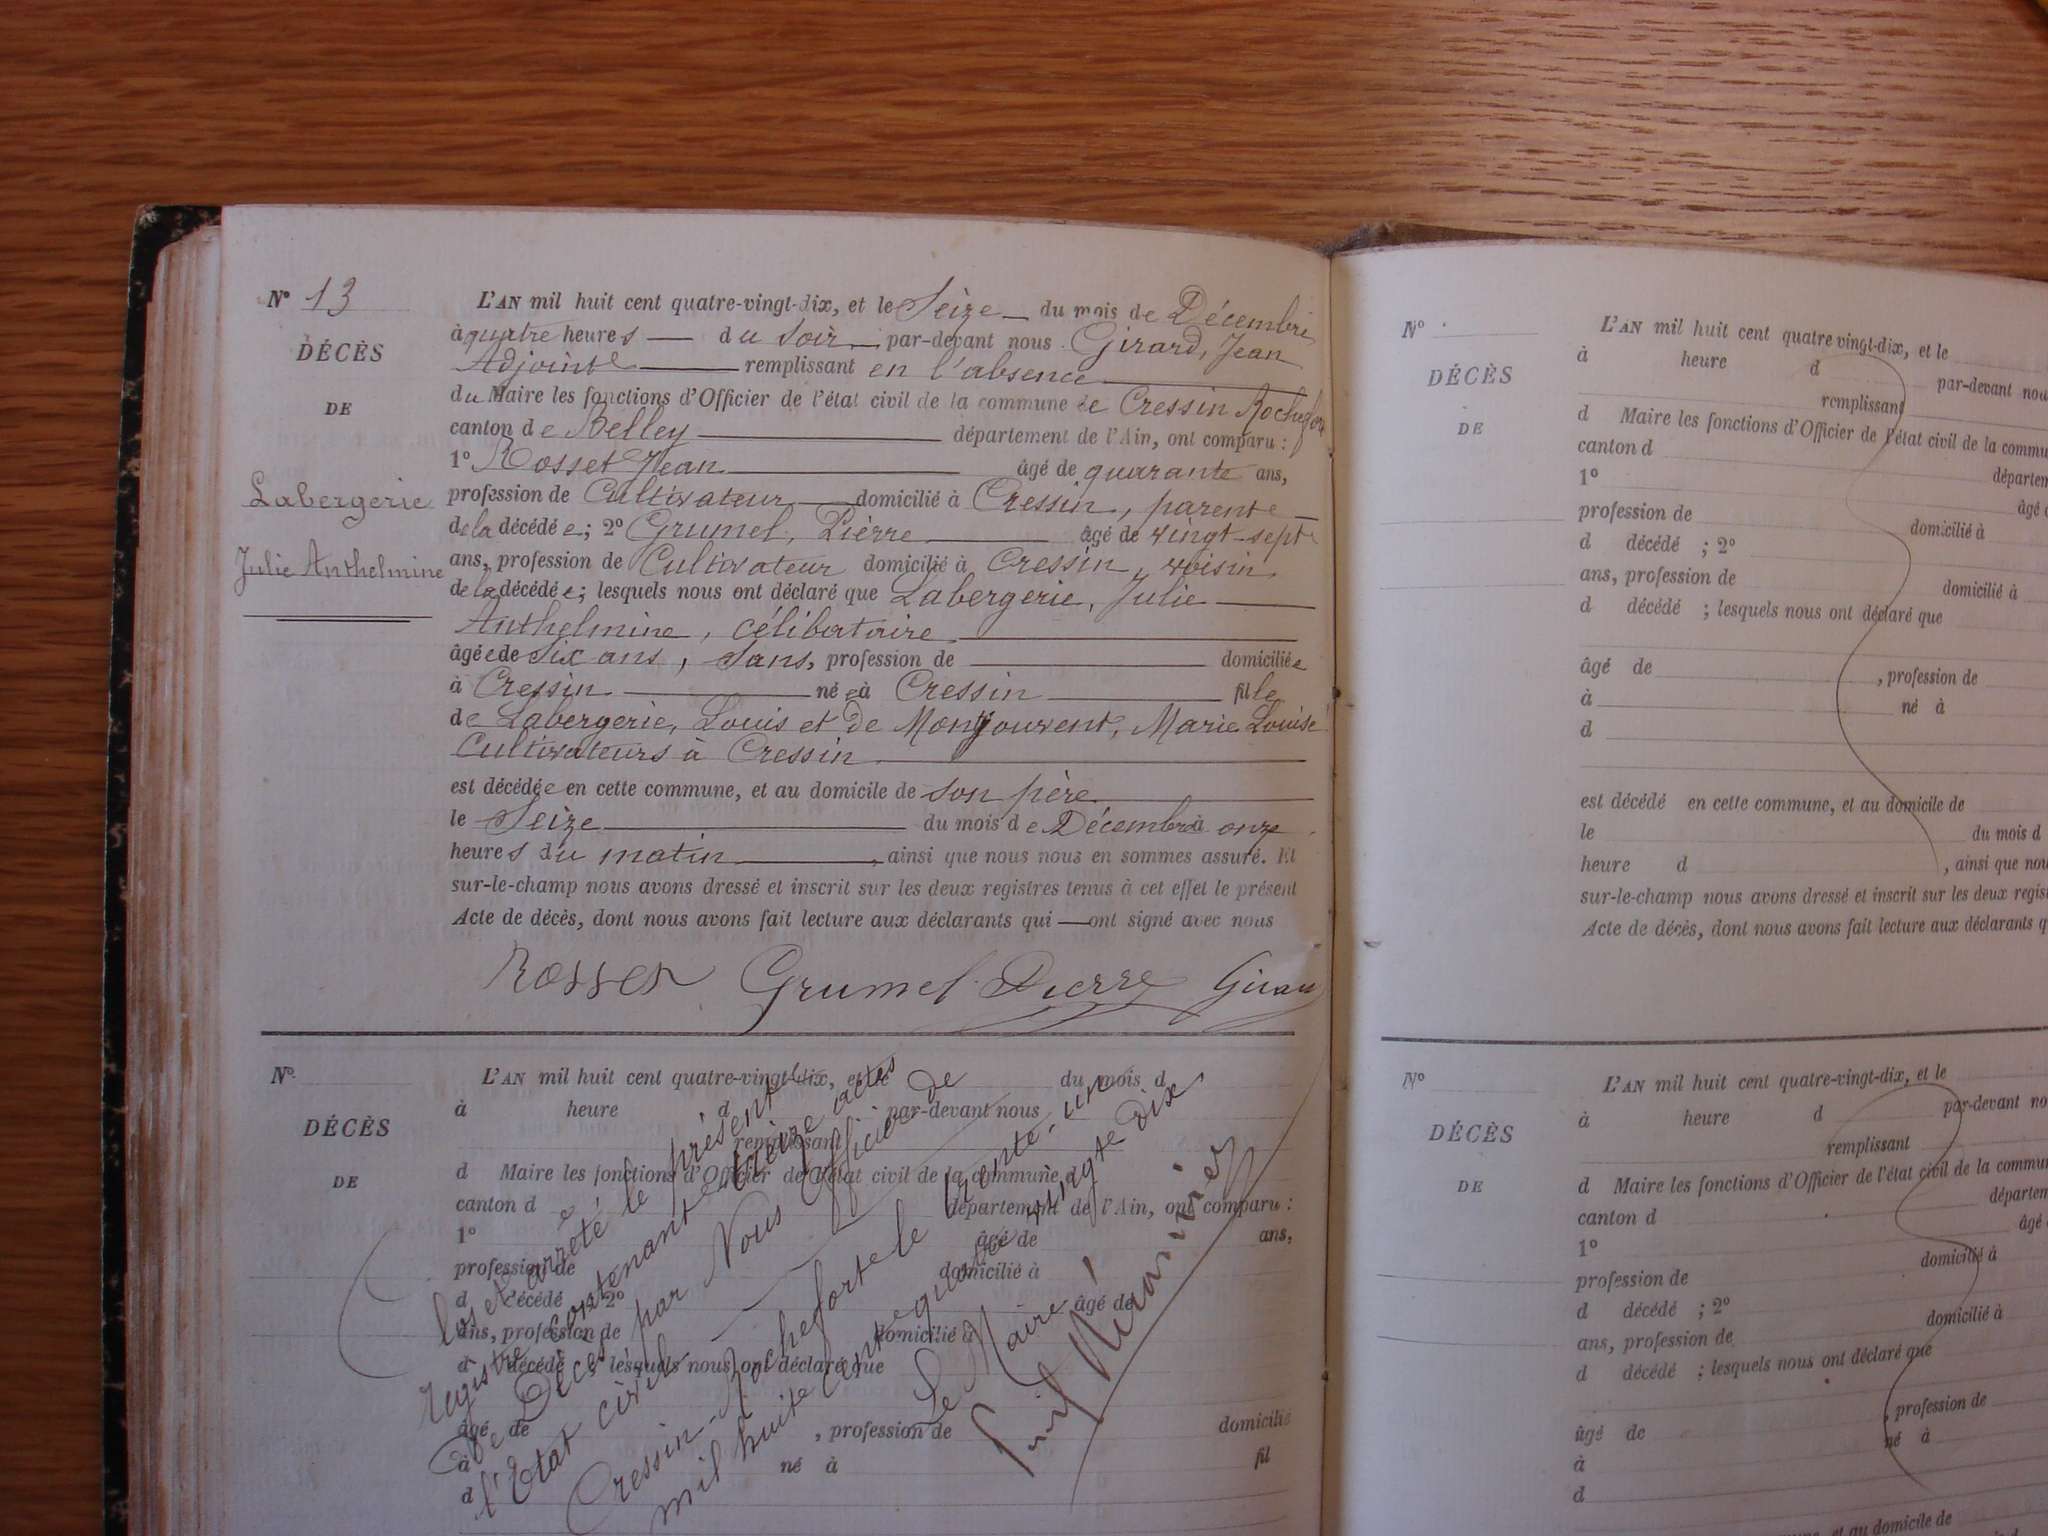 N° 13
DÉCÈS
DE
Labergerie
Julie Anthelmine
L'AN mil huit cent quatre-vingt-dix, et le Seize du mois de Décembre
à quatre heures du soir par-devant nous Girard, Jean
Adjoint remplissant en l'absence
du Maire les fonctions d'Officier de l'état civil de la commune de Cressin Rochefort
canton de Belley département de l'Ain, ont comparu :
1° Rosset Jean âgé de quarante ans,
profession de Cultivateur domicilié à Cressin, parente
de la décédée; 2° Grumel, Pierre âgé de vingt-sept
ans, profession de Cultivateur domicilié à Cressin, voisin
de la décédée; lesquels nous ont déclaré que Labergerie, Julie
Anthelmine, célibataire
âgée de Six ans, Sans, profession de domiciliée
à Cressin née à Cressin fille
de Labergerie, Louis et de Montjouvent, Marie Louise
Cultivateurs à Cressin
est décédée en cette commune, et au domicile de son père
le Seize du mois de Décembre à onze
heures du matin, ainsi que nous nous en sommes assuré. Et
sur-le-champ nous avons dressé et inscrit sur les deux registres tenus à cet effet le présent
Acte de décès, dont nous avons fait lecture aux déclarants qui — ont signé avec nous
Rosset Grumel Pierre Girard
N°
DÉCÈS
DE
L'AN mil huit cent quatre-vingt-dix, et le du mois d
à heure d par-devant nous
remplissant
d Maire les fonctions d'Officier de l'état civil de la commune d
canton d département de l'Ain, ont comparu :
1° âgé de ans,
profession de domicilié à
d décédé ; 2° âgé de
ans, profession de domicilié à
d décédé ; lesquels nous ont déclaré que
âgé de , profession de domicilié
à né à fil
d
Clos et arrêté le présent
registre contenant treize actes
de Décès par Nous Officier de
l'Etat civil
Cressin-Rochefort le trente-un
mil huit cent quatre vingt dix
Le Maire
N°
DÉCÈS
DE
L'AN mil huit cent quatre vingt-dix, et le
à heure d par-devant nou
remplissant
d Maire les fonctions d'Officier de l'état civil de la commu
canton d départem
1° âgé d
profession de domicilié à
d décédé ; 2°
ans, profession de domicilié à
d décédé ; lesquels nous ont déclaré que
âgé de , profession de
à né à
d
est décédé en cette commune, et au domicile de
le du mois d
heure d , ainsi que nou
sur-le-champ nous avons dressé et inscrit sur les deux regist
Acte de décès, dont nous avons fait lecture aux déclarants q
N°
DÉCÈS
DE
L'AN mil huit cent quatre-vingt-dix, et le
à heure d par-devant no
remplissant
d Maire les fonctions d'Officier de l'état civil de la commu
canton d départem
1° âgé d
profession de domicilié à
d décédé ; 2°
ans, profession de domicilié à
d décédé ; lesquels nous ont déclaré que
âgé de , profession de
à né à
d
et au domicile de